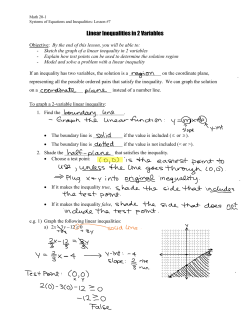 Math 20-1
Systems of Equations and Inequalities: Lesson #7
Linear Inequalities in 2 Variables
Objective: By the end of this lesson, you will be able to:
- Sketch the graph of a linear inequality in 2 variables
- Explain how test points can be used to determine the solution region
- Model and solve a problem with a linear inequality
If an inequality has two variables, the solution is a region on the coordinate plane,
representing all the possible ordered pairs that satisfy the inequality. We can graph the solution
on a coordinate plane instead of a number line.
To graph a 2-variable linear inequality:
1. Find the boundary line.
- Graph the linear function: y=mx+b
slope
y-int
• The boundary line is solid if the value is included (≤ or ≥).
• The boundary line is dotted if the value is not included (< or >).
2. Shade the half-plane that satisfies the inequality.
• Choose a test point: (0,0) is the easiest point to
use, unless the line goes through (0,0)
→ Plug x+y into original inequality
• If it makes the inequality true, shade the side that includes
the test point.
• If it makes the inequality false, shade the side that does not
include the test point.
e.g. 1) Graph the following linear inequalities:
solid line
y = 2/3 x - 4
y-int: -4
slope: 2 rise
3 run
Test Point: (0,0)
x y
2(0)-3(0)-12≥0
-12≥0
False